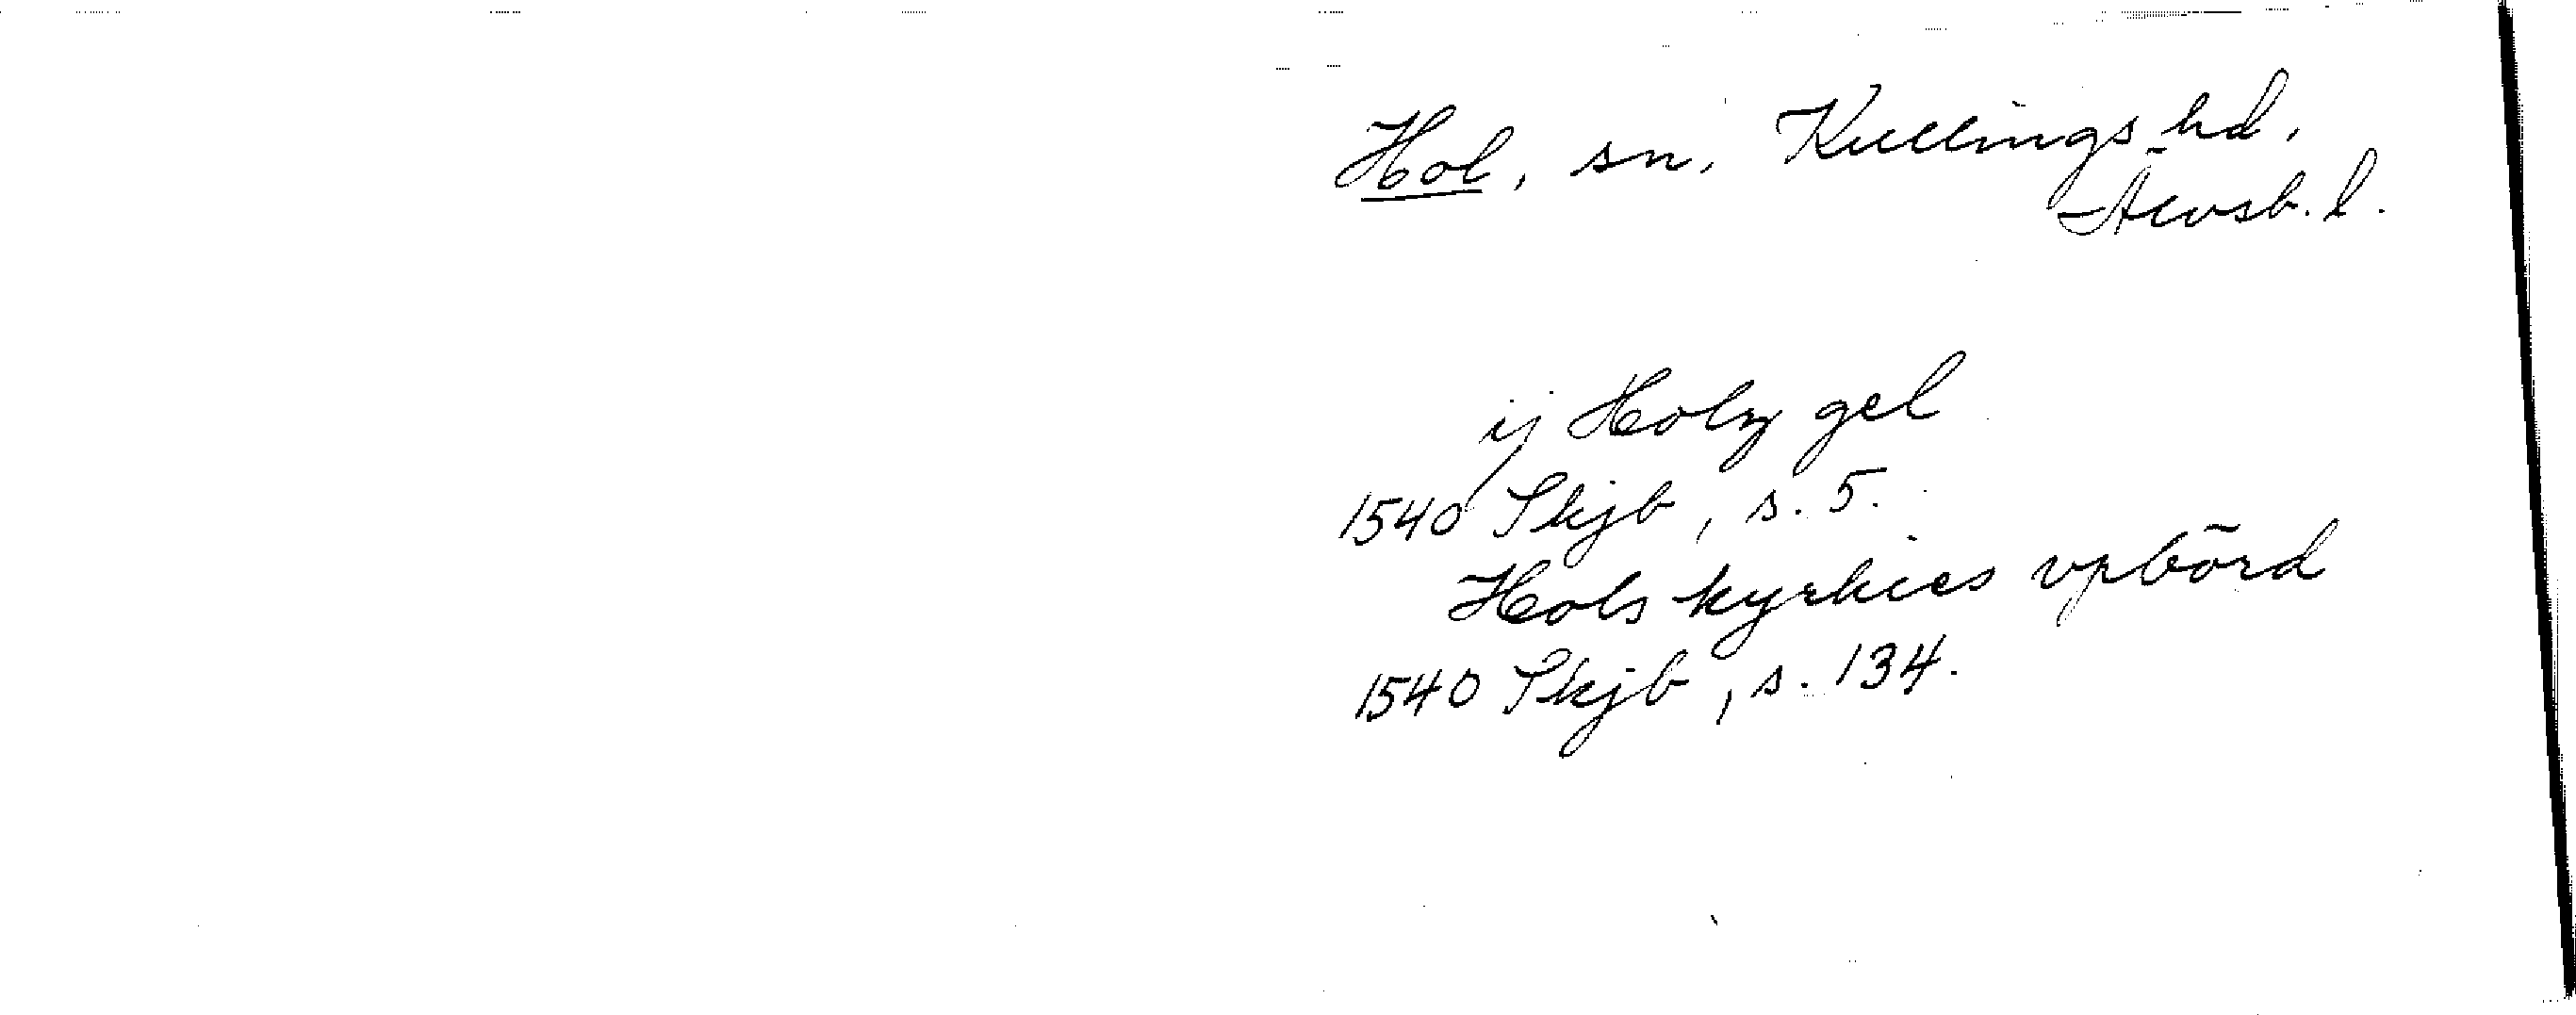 Hol, sn, Kullings hd,
Älvsb. l.
ij Holz gel
1540 Skjb, s. 5.
Hols kyrkies vpbörd
1540 Skjb, s. 134.